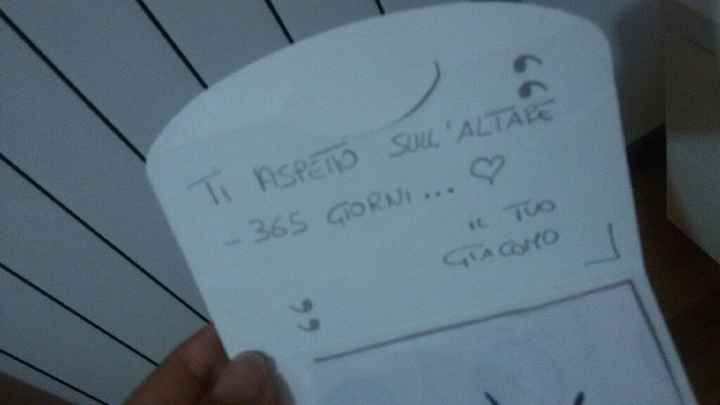 TI ASPETTO SULL'ALTARE
- 365 GIORNI... ♡
IL TUO
GIACOMO